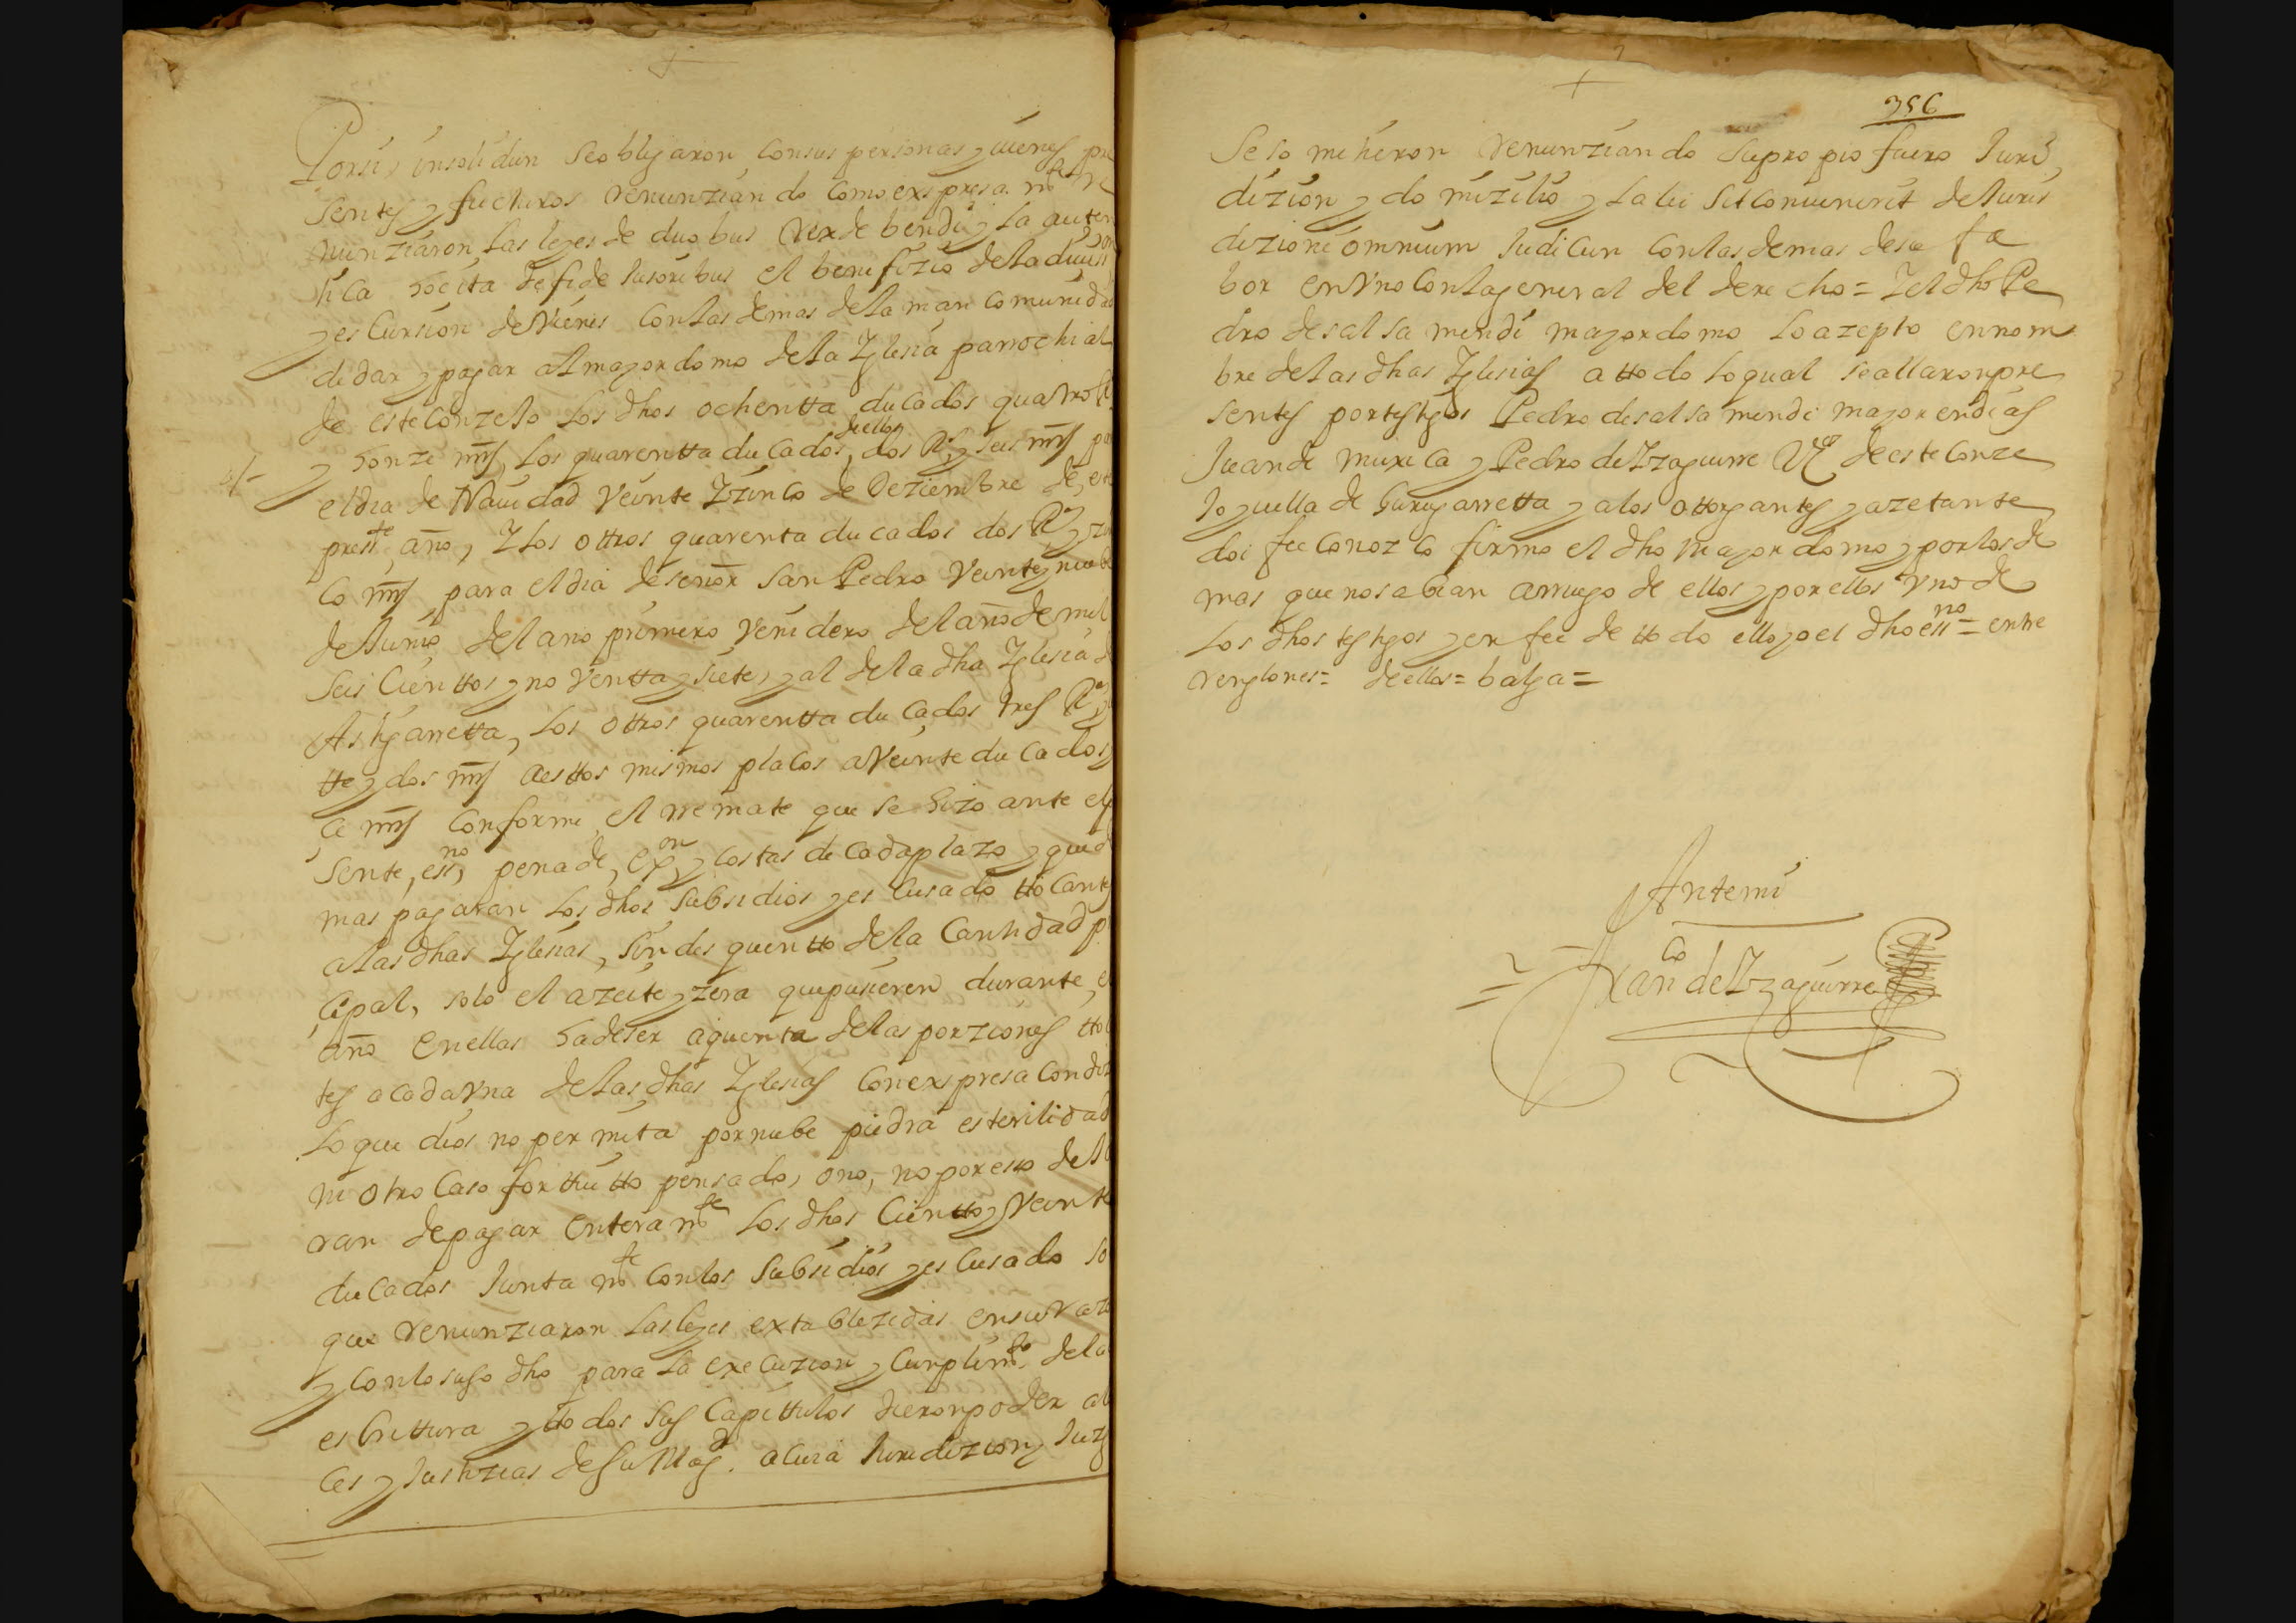 Por si, insolidun se obligaron con sus personas y vienes pre
sentes y fucturos renunziando como expresa mte re
nunziaron las leyes de duobus rex de bendi y la auten
tica hocita de fide Iusoribus el benefizio de la diuision
y escursion de vienes con las demas de la mancomunidad
de dar y pagar al mayordomo de la Yglesia parrochial
de este conzeJo los dhos ochentta ducados quatro Rs
y honze mrs, los quarentta ducados de ellos, dos Rs y seis mrs para
el dia de Nauidad Veinte Y zinco de Deziembre de este
presste año, Y los ottros quarenta ducados dos Rs y zin
co mrs para el dia de señor san Pedro Veinte y nuebe
de Junio del ano primero Venidero del año de mil
seis cienttos y noventta y siete, y al de la dha Yglesia de
Astigarretta, los ottros quarentta ducados tres Rs y
tte y dos mrs a esttos mismos placos a Veinte ducados
ce mrs conforme el rremate que se hizo ante el
sente, essno, pena de exon y costas de cada plazo y que de
mas pagaran los dhos subsidios y escusado ttocantes
a las dhas Yglesias, sin desquentto de la cantidad prin
cipal, solo el azeite y zera que pusieren durante el
año en ellas ha de ser a quenta de las porziones tto
tes a cada Vna de las dhas Yglesias con expresa condiz
lo que dios no permita por nube piedra esterilidad
ni otro caso forttuitto pensado, o no, no por esso deJa
ran de pagar entera mte los dhos cientto y Veinte
ducados Junta mte con los subsidios y escusado so
que renunziaron las leyes extablezidas en su razo
y con lo suso dho para la execuzion y cunplimto de la
escrittura y ttodos sus capittulos dieron poder a
ces y Justizias de su Magd. a cuia Juridizion y Juzg
356
se sometieron renunziando su propio fuero Juris
dizion y domizilio y la lei sit conuenerit de Juris
dizione omnium Judicun con las demas de su fa
bor en Vno con la general del derecho = Y el dho Pe
dro de salsamendi mayordomo lo azepto en nom
bre de las dhas Yglesias a ttodo lo qual se allaron pre
sentes por testigos Pedro de salsamendi mayor en dias
Juan de muxica y Pedro de Yzaguirre Vos de este conze
Jo y uilla de Gurugarretta y a los ottorgantes y azetante
doi fee conozco firmo el dho mayordomo y por los de
mas que no sabian a rruego de ellos y por ellos Vno de
los dhos testigos y en fee de ttodo ello yo el dho essno = entre
renglones = de ellos = balga =
Ante mi
Franco de Yzaguirre